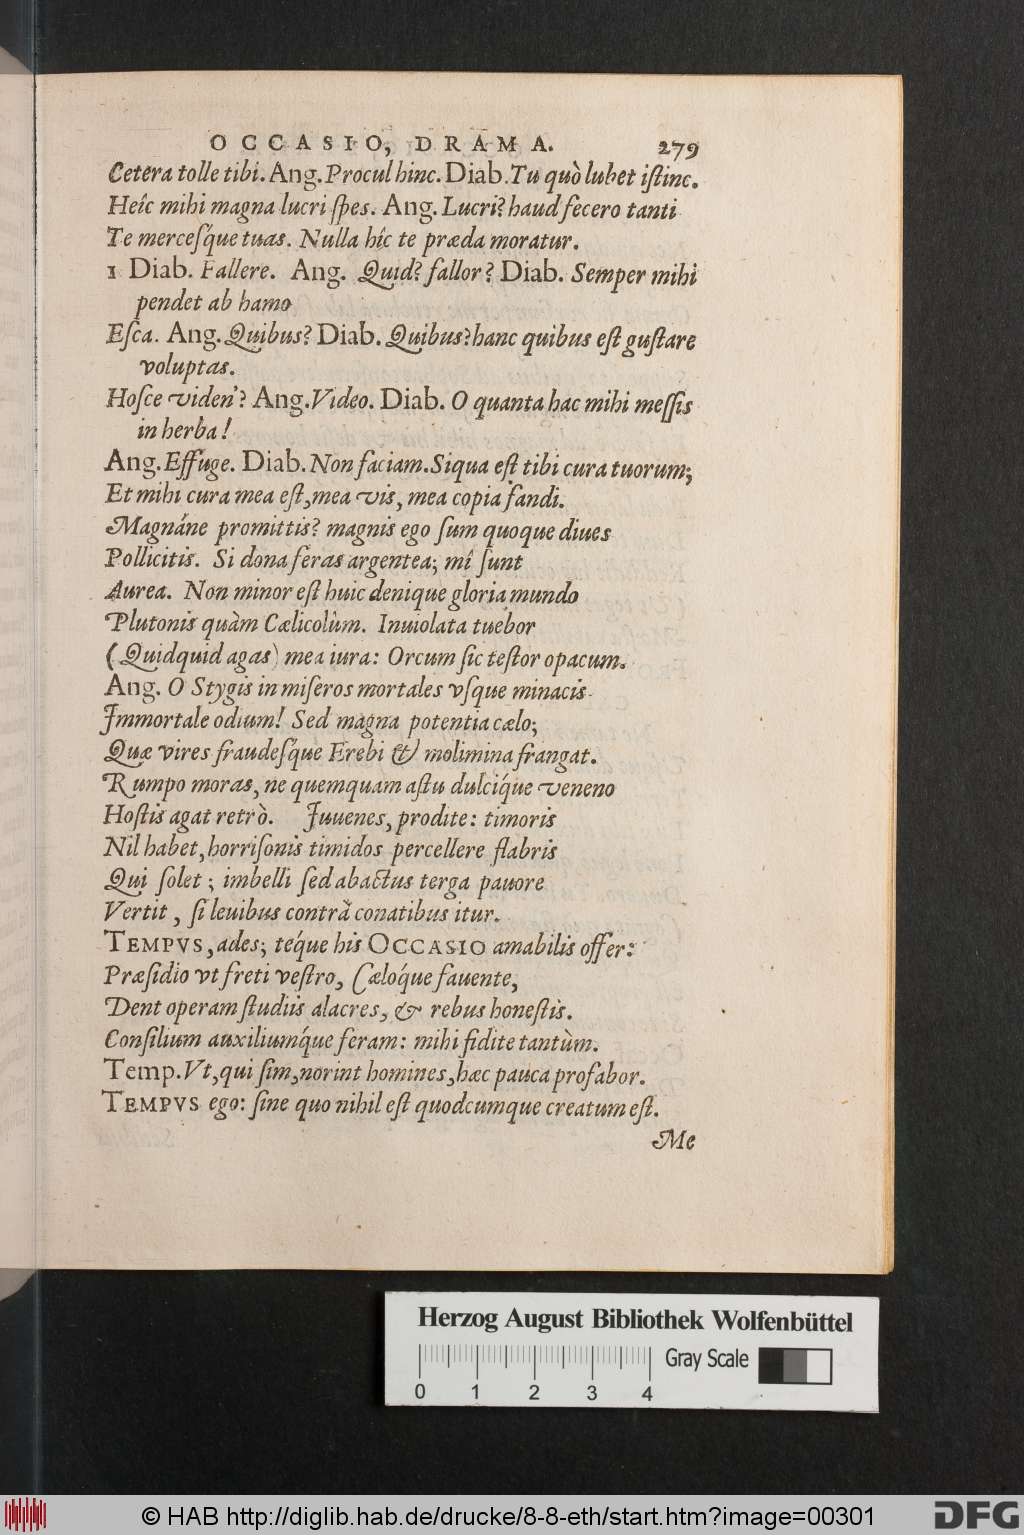 OCCASIO, DRAMA. 279
Cetera tolle tibi. Ang. Procul hinc. Diab. Tu quò lubet istinc.
Heíc mihi magna lucri spes. Ang. Lucri? haud fecero tanti
Te mercesq́ue tuas. Nulla hîc te præda moratur.
1 Diab. Fallere. Ang. Quid? fallor? Diab. Semper mihi
pendet ab hamo
Esca. Ang. Quibus? Diab. Quibus? hanc quibus est gustare
voluptas.
Hosce viden'? Ang. Video. Diab. O quanta hac mihi messis
in herba!
Ang. Effuge. Diab. Non faciam. Siqua est tibi cura tuorum;
Et mihi cura mea est, mea vis, mea copia fandi.
Magnáne promittis? magnis ego sum quoque diues
Pollicitis. Si dona feras argentea; mî sunt
Aurea. Non minor est huic denique gloria mundo
Plutonis quàm Cælicolûm. Inuiolata tuebor
(Quidquid agas) mea iura: Orcum sic testor opacum.
Ang. O Stygis in miseros mortales vsque minacis
Immortale odium! Sed magna potentia cælo;
Quæ vires fraudesq́ue Erebi & molimina frangat.
Rumpo moras, ne quemquam astu dulciq́ue veneno
Hostis agat retrò. Iuuenes, prodite: timoris
Nil habet, horrisonis timidos percellere flabris
Qui solet; imbelli sed abactus terga pauore
Vertit, si leuibus contrà conatibus itur.
TEMPVS, ades; teq́ue his OCCASIO amabilis offer:
Præsidio vt freti vestro, Cæloq́ue fauente,
Dent operam studiis alacres, & rebus honestis.
Consilium auxiliumq́ue feram: mihi fidite tantùm.
Temp. Vt, qui sim, norint homines, hæc pauca profabor.
TEMPVS ego: sine quo nihil est quodcumque creatum est.
Me
Herzog August Bibliothek Wolfenbüttel
Gray Scale
0 1 2 3 4
© HAB http://diglib.hab.de/drucke/8-8-eth/start.htm?image=00301
DFG